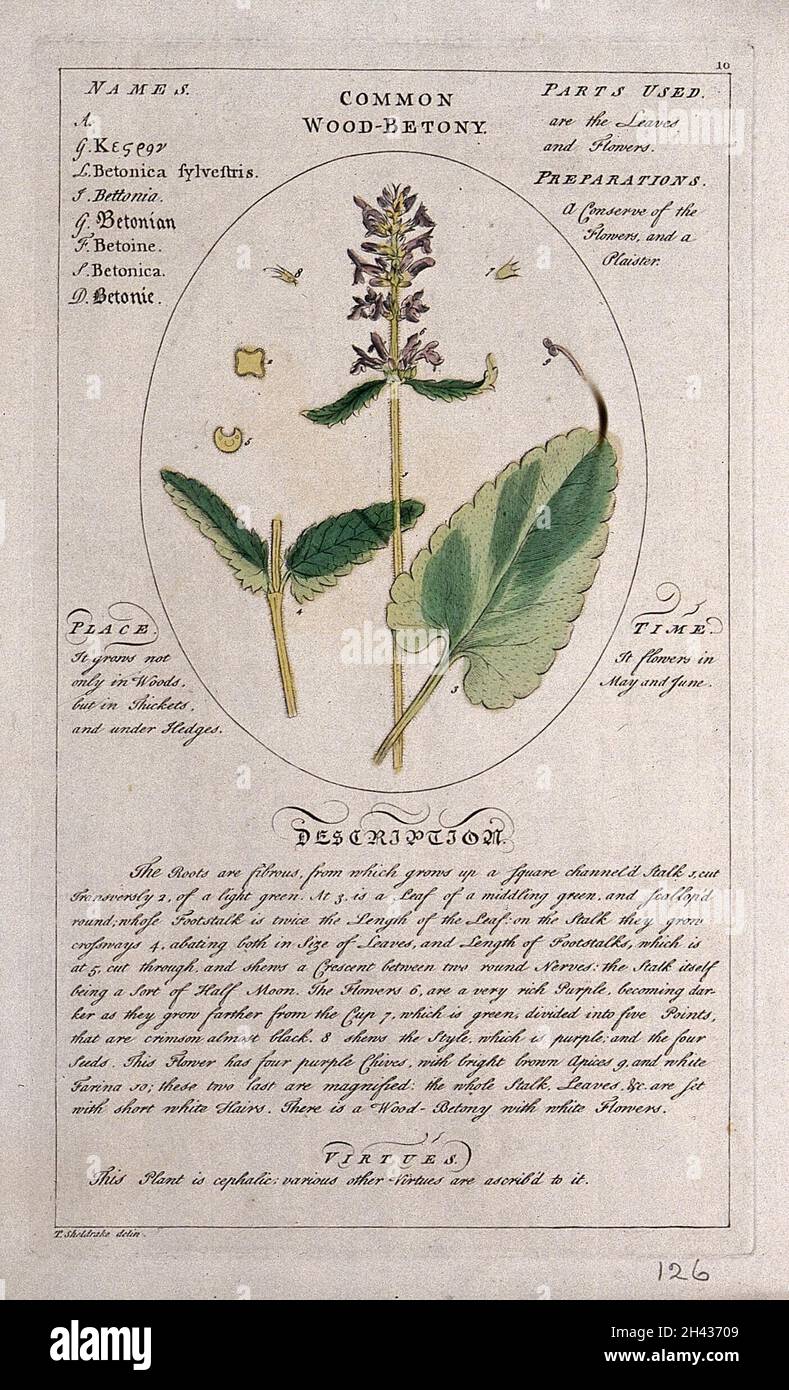 10
NAMES.
A.
G. Κεςρον
L. Betonica ſylveſtris.
I. Bettonia.
G. Betonian
F. Betoine.
S. Betonica.
D. Betonie.
COMMON
WOOD-BETONY.
PARTS USED.
are the Leaves
and Flowers.
PREPARATIONS.
A Conserve of the
Flowers, and a
Plaister.
8
7
6
9
2
5
1
4
3
PLACE.
It grows not
only in Woods,
but in Thickets,
and under Hedges.
TIME.
It flowers in
May and June.
DESCRIPTION.
The Roots are fibrous, from which grows up a ſquare channel'd Stalk 1, cut
Transversly 2, of a light green. At 3, is a Leaf of a middling green, and ſcollop'd
round; whoſe Footstalk is twice the Length of the Leaf: on the Stalk they grow
croſsways 4, abating both in Size of Leaves, and Length of Footstalks, which is
at 5, cut through, and shews a Crescent between two round Nerves: the Stalk itself
being a Sort of Half Moon. The Flowers 6, are a very rich Purple, becoming dar-
ker as they grow farther from the Cup 7, which is green; divided into five Points,
that are crimson almost black. 8 shews the Style, which is purple; and the four
Seeds. This Flower has four purple Chives, with bright brown Apices 9, and white
Farina 10; these two last are magnified: the whole Stalk, Leaves, &c. are ſet
with short white Hairs. There is a Wood-Betony with white Flowers.
VIRTUES.
This Plant is cephalic; various other Virtues are ascrib'd to it.
T. Sheldrake delin.
126
alamy
alamy
Image ID: 2H43709
www.alamy.com